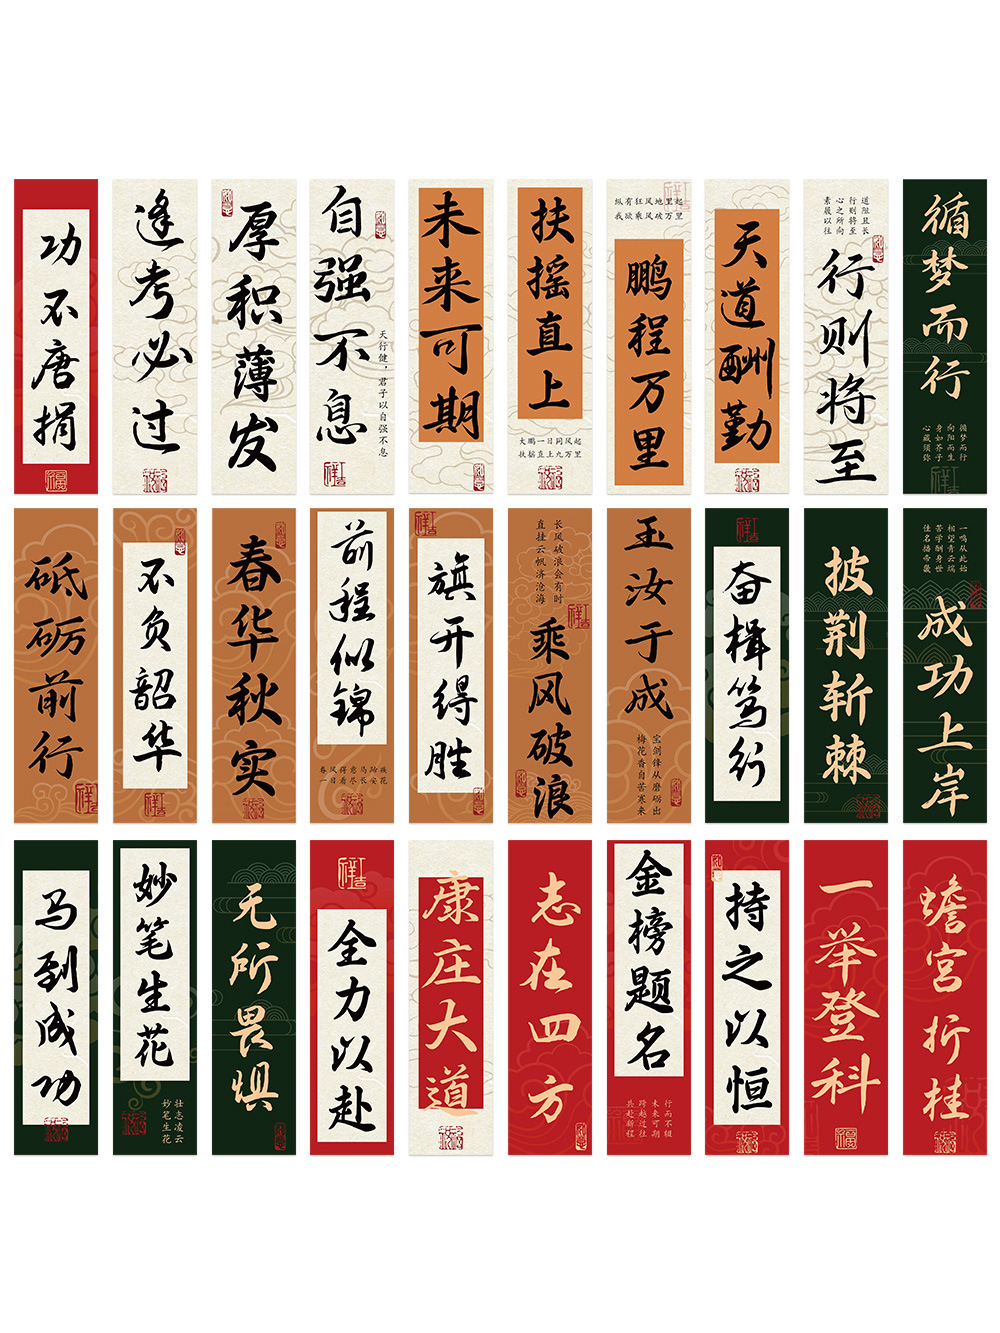 功不唐捐
逢考必过
厚积薄发
自强不息
天行健，君子以自强不息
未来可期
扶摇直上
大鹏一日同风起
扶摇直上九万里
纵有狂风地里起
我欲乘风破万里
鹏程万里
天道酬勤
道阻且长
行则将至
心之所向
素履以往
行则将至
循梦而行
循梦而行
向阳而生
身如芥子
心藏须弥
砥砺前行
不负韶华
春华秋实
前程似锦
春风得意马蹄疾
一日看尽长安花
旗开得胜
长风破浪会有时
直挂云帆济沧海
乘风破浪
玉汝于成
宝剑锋从磨砺出
梅花香自苦寒来
奋楫笃行
披荆斩棘
一鸣从此始
相望青云端
苦学酬身世
佳名播帝畿
成功上岸
马到成功
妙笔生花
壮志凌云
妙笔生花
无所畏惧
全力以赴
康庄大道
志在四方
金榜题名
行而不辍
未来可期
跨越过往
共赴新程
持之以恒
一举登科
蟾宫折桂